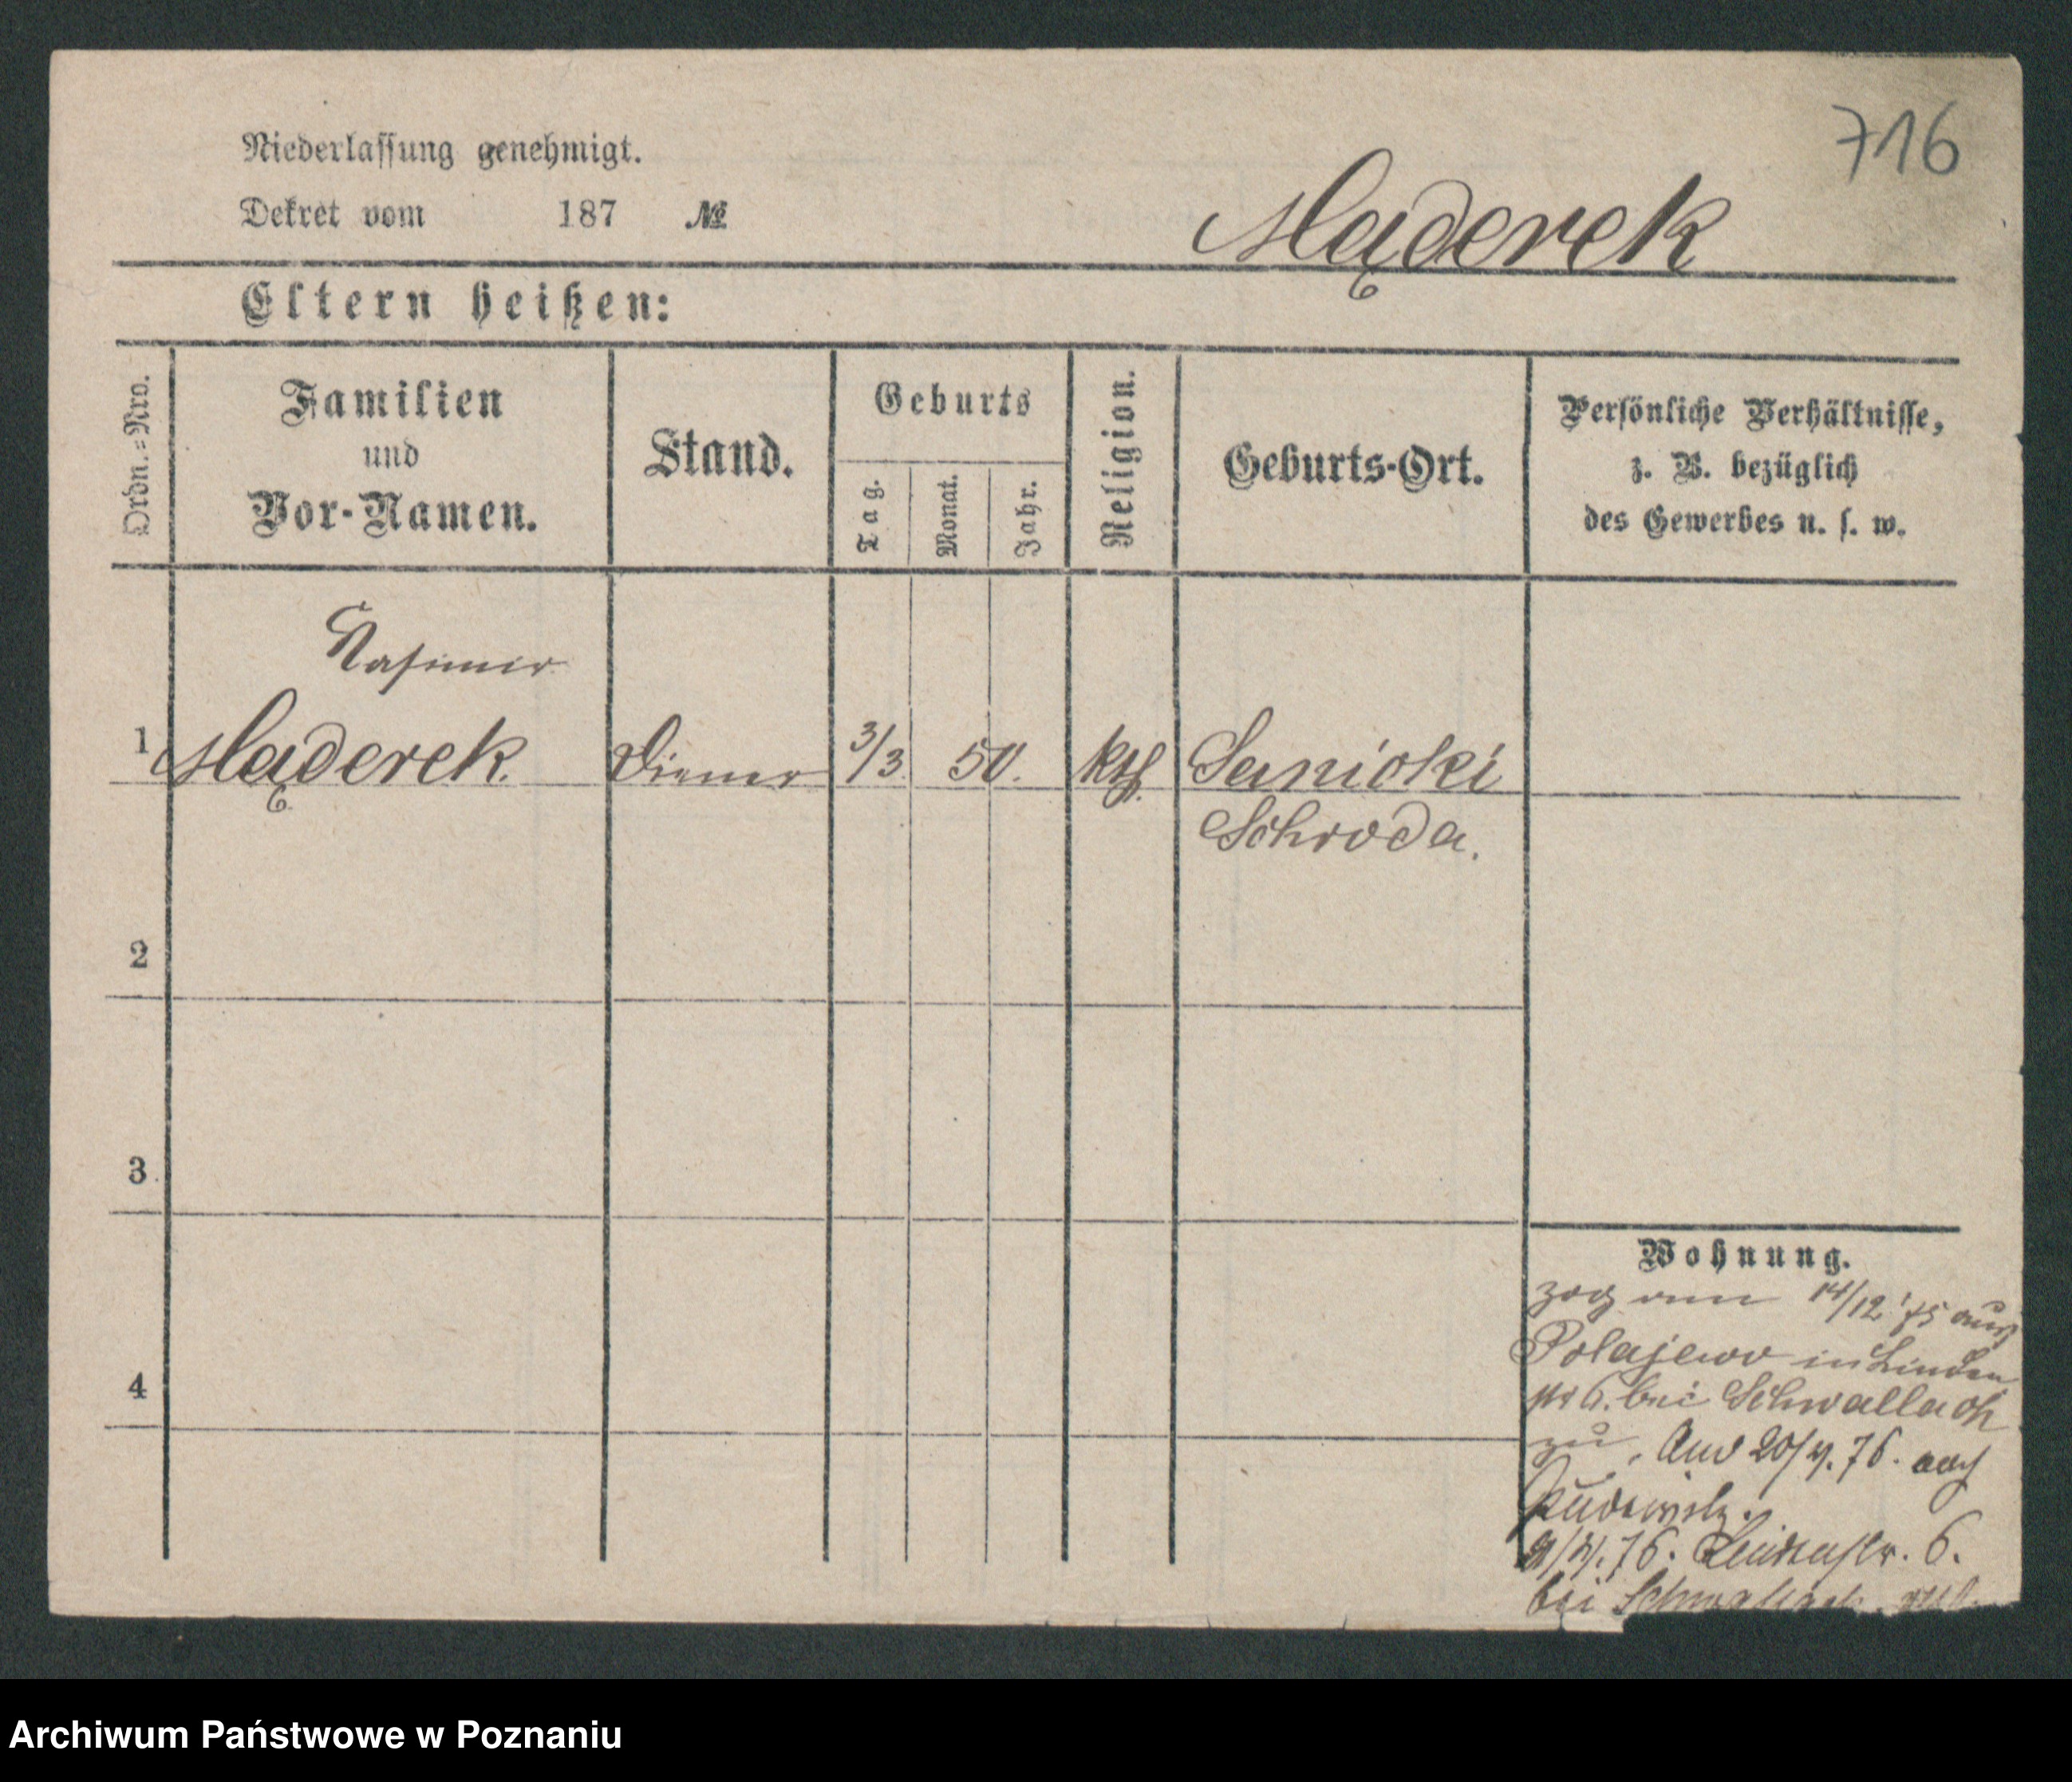 716
Niederlassung genehmigt.
Dekret vom 187 №
Mąderek
Eltern heißen:
Ordn.=Nro.
Familien
und
Vor-Namen.
Stand.
Geburts
Tag.
Monat.
Jahr.
Religion.
Geburts-Ort.
Persönliche Verhältnisse,
z. B. bezüglich
des Gewerbes u. s. w.
Kasimir
1 Mąderek. Diener 3/3 50. kth.
Schroda.
2
3
4
Wohnung.
zog am 14/12. 75 aus
Polajewo in Linden
str 6. bei Schwallach
zu. 76. nach
Pudewitz.
76. Lindenstr. 6.
bei Schwallach
Archiwum Państwowe w Poznaniu